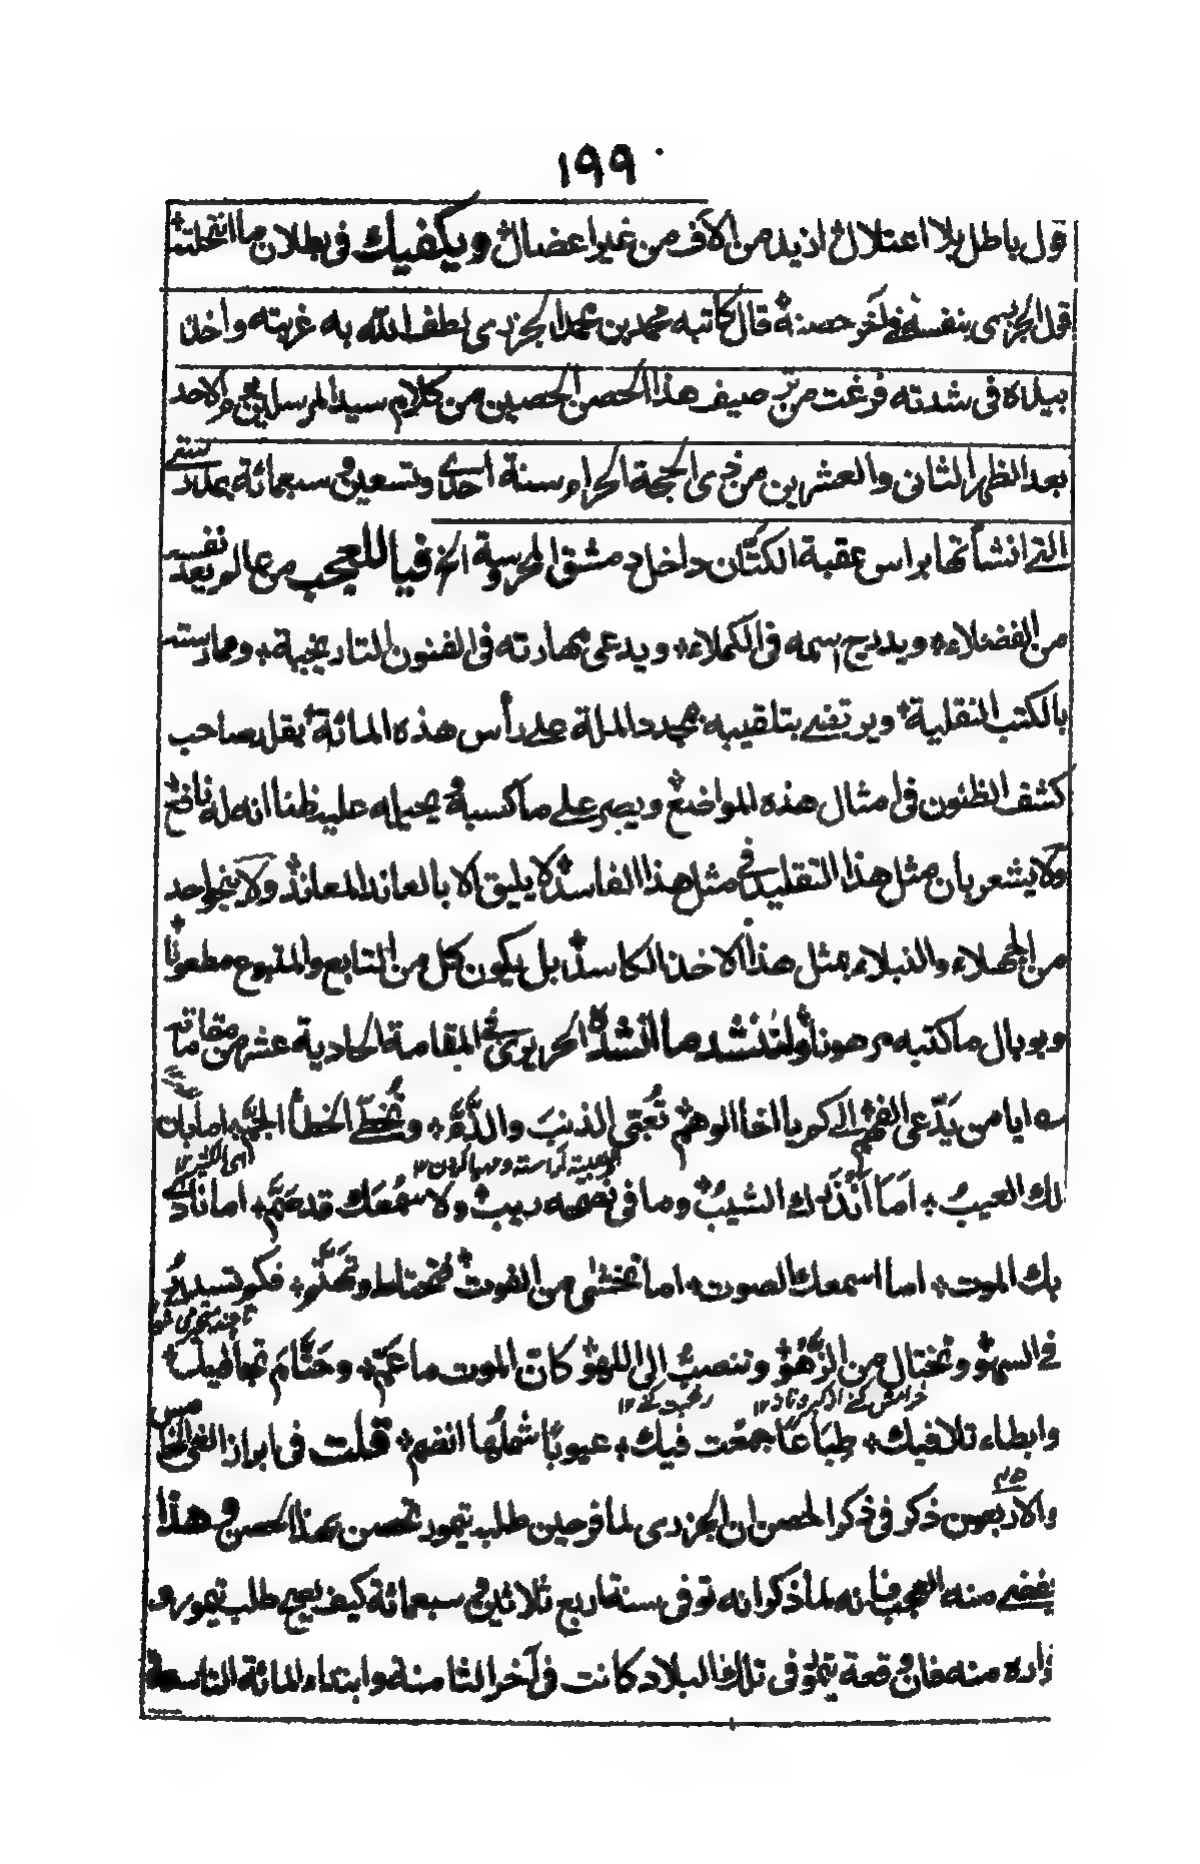 ١٩٩
قول باطل بلا اعتلال ازيد من الآف من غير اعضال ويكفيك فى بطلان ما انتحلته
قول الجزرى بنفسه فى آخر حصنه قال كاتبه محمد بن محمد الجزرى لطف الله به فى غربته واخذ
بيده فى شدته فرغت من ترصيف هذا الحصن الحصين من كلام سيد المرسلين يوم الاحد
بعد الظهر الثانى والعشرين من ذى الحجة الحرام سنة احدى وتسعين وسبعمائة بمدرستى
التى انشأتها براس عقبة الكتان داخل دمشق المحروسة الخ فيا للعجب من عالم يعد نفسه
من الفضلاء ويدرج اسمه فى الكملاء ويدعى مهارته فى الفنون التاريخية وممارسته
بالكتب النقلية ويرتضى بتلقيبه بمجدد الملة على رأس هذه المائة يقلد صاحب
كشف الظنون فى امثال هذه المواضع ويصر على ما كسبه ويحيله عليه ظنا انه له نافع
ولا يشعر بان مثل هذا التقليد فى مثل هذا الفاسد لا يليق الا بالعاند المعاند ولا ينجو احد
من الجهلاء والنبلاء بمثل هذا الاخذ الكاسد بل يكون كل من التابع والمتبوع مطعونا
وبوبال ما كتبه مرهونا ولننشد ما انشده الحريرى فى المقامة الحادية عشر من مقاماته
ايا من يَدّعى الفهم الى كم يا اخا الوهم تُعَبّى الذنبَ والذَّمَّ وتُخطى الخطأ الجمّ اما بان
لك العيبُ اَمَا اَنْذَرَك الشيبُ وما فى نصحه ريبٌ ولا سمعُك قد صَمّ اما نادى
بك الموت اما اسمعك الصوت اما تخشى من الفوت فتحتاط وتَهْتَمّ فكم تسدر
فى السهو وتختال من الزَّهْو وتنصبّ الى اللهو كان الموت ما عَمّ وحَتَّامَ تجافيك
وابطاء تلافيك طِبَاعًا جمعت فيك عيوبًا شملُها انضم قلت فى ابراز الغى الخامس
والاربعون ذكر فى ذكر الحصن ان الجزرى لما فر حين طلبه تيمور تحصن بهذا الحصن وهذا
يقضى منه العجب فانه لما ذكر انه توفى سنة اربع وثلاثين وسبعمائة كيف يصح طلب تيمور و
اراده منه فان وقعة تيمور فى تلك البلاد كانت فى آخر الثامنة وابتداء المائة التاسعة